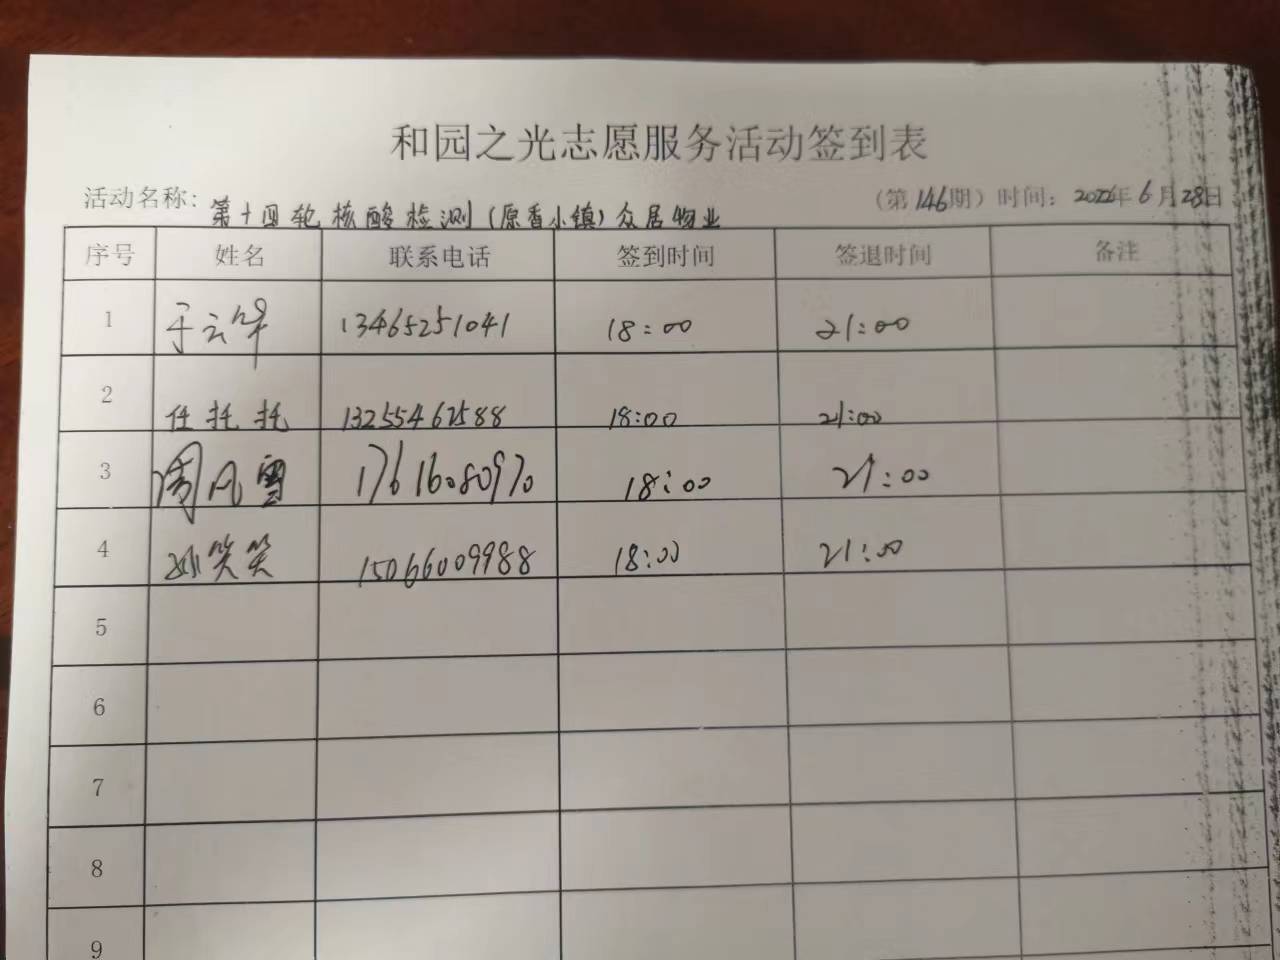 和园之光志愿服务活动签到表
活动名称：第十四轮核酸检测（原香小镇）众居物业 （第146期）时间：2022年6月28日
序号 姓名 联系电话 签到时间 签退时间 备注
1 于云华 13465251041 18:00 21:00
2 任托托 13255462588 18:00 21:00
3 周风雪 17616080970 18:00 21:00
4 孙笑笑 15066009988 18:00 21:00
5
6
7
8
9